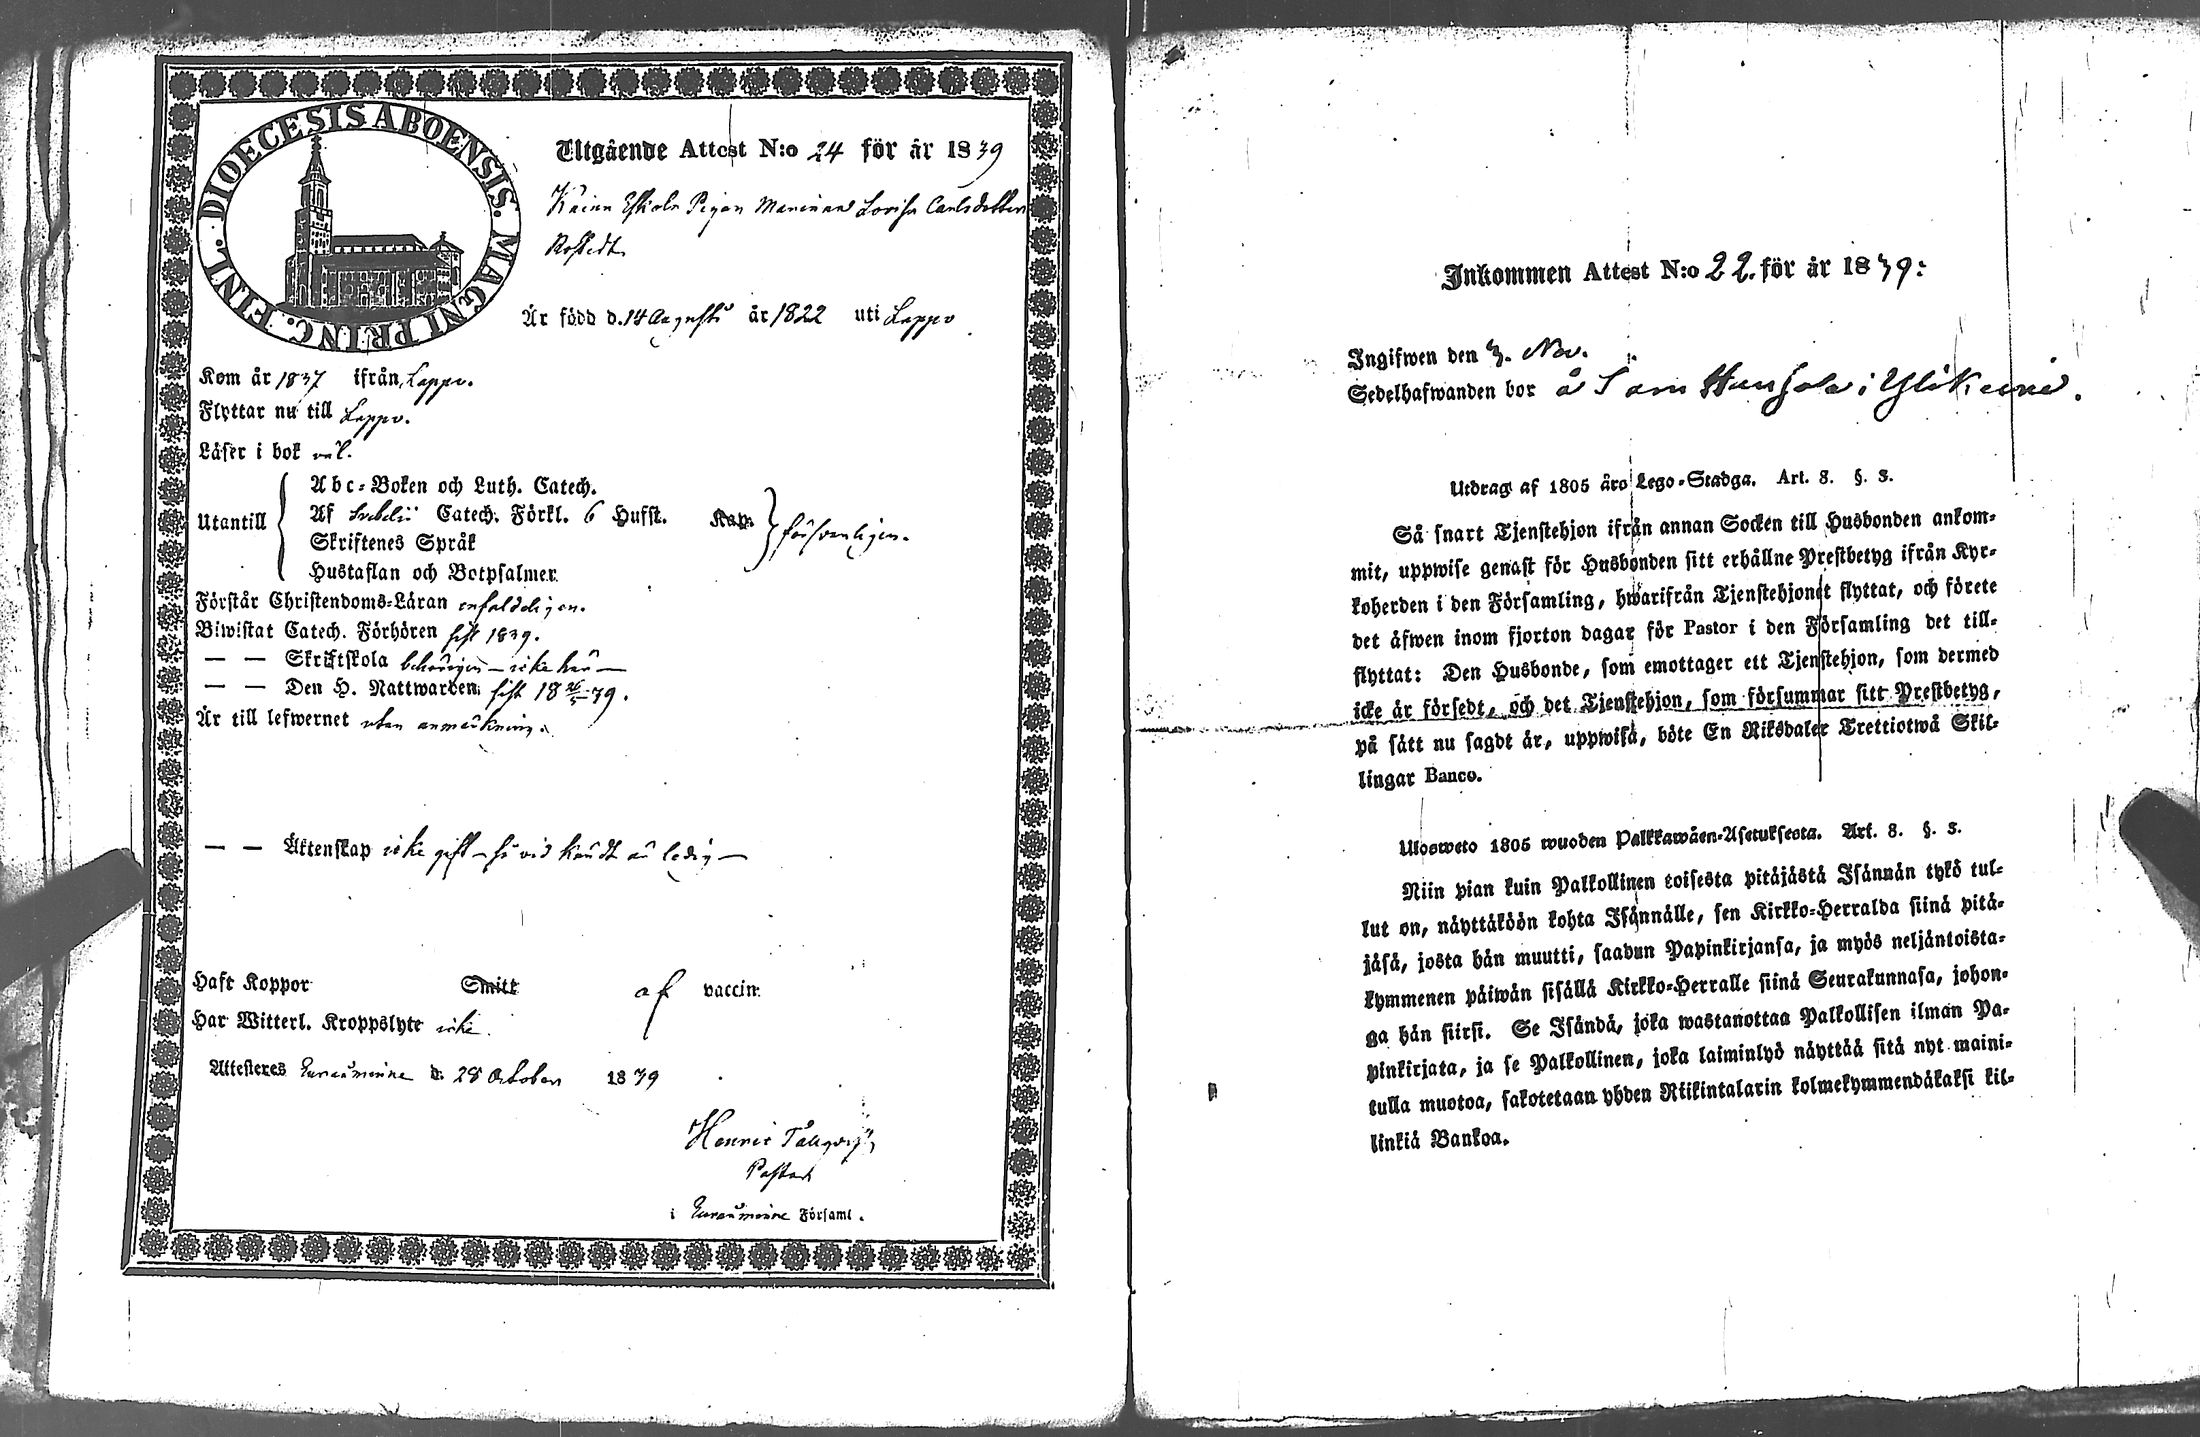 DIOECESIS ABOENSIS. MAGNI PRINC. FINL.
Utgående Attest N:o 24 för år 1839
Pigan Lovisa Carlsdotter
Är född d. 14 Augusti år 1822 uti Lappo
Kom år 1837 ifrån Lappo.
Flyttar nu till Lappo.
Läser i bok väl.
Utantill
Abc-Boken och Luth. Catech.
Af Svebelii Catech. Förkl. 6 Hufst. Kap.
Skriftenes Språk
Hustaflan och Botpsalmer
försvarligen.
Förstår Christendoms-Läran enfaldeligen.
Biwistat Catech. Förhören sist 1839.
— — Skriftskola behörigen — icke här —
— — Den H. Nattwarden sist 18 39.
Är till lefwernet utan anmärkning.
— — Äktenskap icke gift — så vidt kändt är ledig —
Haft Koppor Smitt af vaccin.
Har Witterl. Kroppslyte icke.
Attesteras Euraåminne d. 28 October 1839
Henric
Pastor
i Euraåminne Församl.
Inkommen Attest N:o 22. för år 1839:
Ingifwen den 3. Nov.
Sedelhafwanden bor å i
Utdrag af 1805 års Lego-Stadga. Art. 8. §. 3.
Så snart Tjenstehjon ifrån annan Socken till Husbonden ankom-
mit, uppwise genast för Husbonden sitt erhållne Prestbetyg ifrån Kyr-
koherden i den Församling, hwarifrån Tjenstehjonet flyttat, och förete
det äfwen inom fjorton dagar för Pastor i den Församling det till-
flyttat: Den Husbonde, som emottager ett Tjenstehjon, som dermed
icke är försedt, och det Tjenstehjon, som försummar sitt Prestbetyg,
på sätt nu sagdt är, uppwisa, böte En Riksdaler Trettiotwå Skil-
lingar Banco.
Ulosweto 1805 wuoden Palkkawäen-Asetuksesta. Art. 8. §. 3.
Niin pian kuin Palkollinen toisesta pitäjästä Isännän tykö tul-
lut on, näyttäköön kohta Isännälle, sen Kirkko-Herralda siinä pitä-
jäsä, josta hän muutti, saadun Papinkirjansa, ja myös neljäntoista-
kymmenen päiwän sisällä Kirkko-Herralle siinä Seurakunnasa, johon-
ga hän siirsi. Se Isändä, joka wastanottaa Palkollisen ilman Pa-
pinkirjata, ja se Palkollinen, joka laiminlyö näyttää sitä nyt maini-
tulla muotoa, sakotetaan yhden Riikintalarin kolmekymmendäkaksi kil-
linkiä Bankoa.